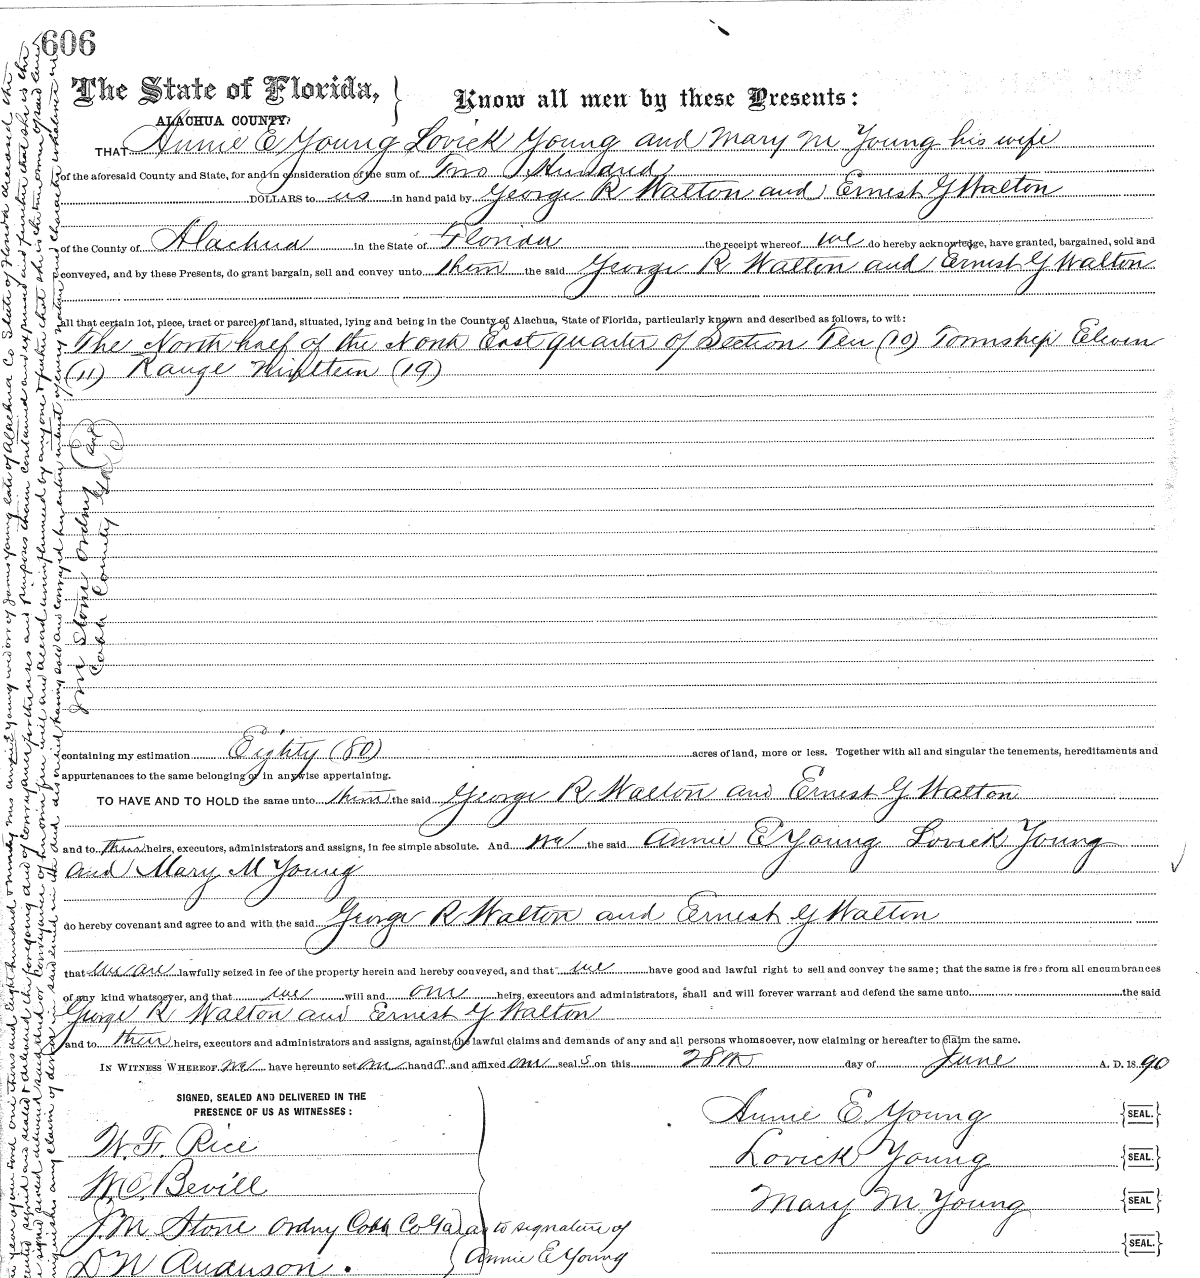 606
The State of Florida,
ALACHUA COUNTY.
Know all men by these Presents:
THAT Annie E Young Lovick Young and Mary M Young his wife
of the aforesaid County and State, for and in consideration of the sum of Two Hundred
DOLLARS to us in hand paid by George R Walton and Ernest G Walton
of the County of Alachua in the State of Florida the receipt whereof we do hereby acknowledge, have granted, bargained, sold and
conveyed, and by these Presents, do grant bargain, sell and convey unto them the said George R Walton and Ernest G Walton
all that certain lot, piece, tract or parcel of land, situated, lying and being in the County of Alachua, State of Florida, particularly known and described as follows, to wit:
The North half of the North East quarter of Section Ten (10) Township Eleven
(11) Range Nineteen (19)
containing my estimation Eighty (80) acres of land, more or less. Together with all and singular the tenements, hereditaments and
appurtenances to the same belonging or in anywise appertaining.
TO HAVE AND TO HOLD the same unto them the said George R Walton and Ernest G Walton
and to their heirs, executors, administrators and assigns, in fee simple absolute. And we the said Annie E Young Lovick Young
and Mary M Young
do hereby covenant and agree to and with the said George R Walton and Ernest G Walton
that we are lawfully seized in fee of the property herein and hereby conveyed, and that we have good and lawful right to sell and convey the same; that the same is free from all encumbrances
of any kind whatsoever, and that we will and our heirs, executors and administrators, shall and will forever warrant and defend the same unto the said
George R Walton and Ernest G Walton
and to their heirs, executors and administrators and assigns, against the lawful claims and demands of any and all persons whomsoever, now claiming or hereafter to claim the same.
IN WITNESS WHEREOF, we have hereunto set our hands and affixed our seals on this 28th day of June A. D. 1890
SIGNED, SEALED AND DELIVERED IN THE
PRESENCE OF US AS WITNESSES:
W. F. Rice
W C Bevill
J. M. Stone Ordny Cobb Co Ga
D N Anderson
as to signature of
Annie E Young
Annie E. Young SEAL.
Lovick Young SEAL.
Mary M Young SEAL
SEAL.
J M Stone Ordny
Cobb County Ga